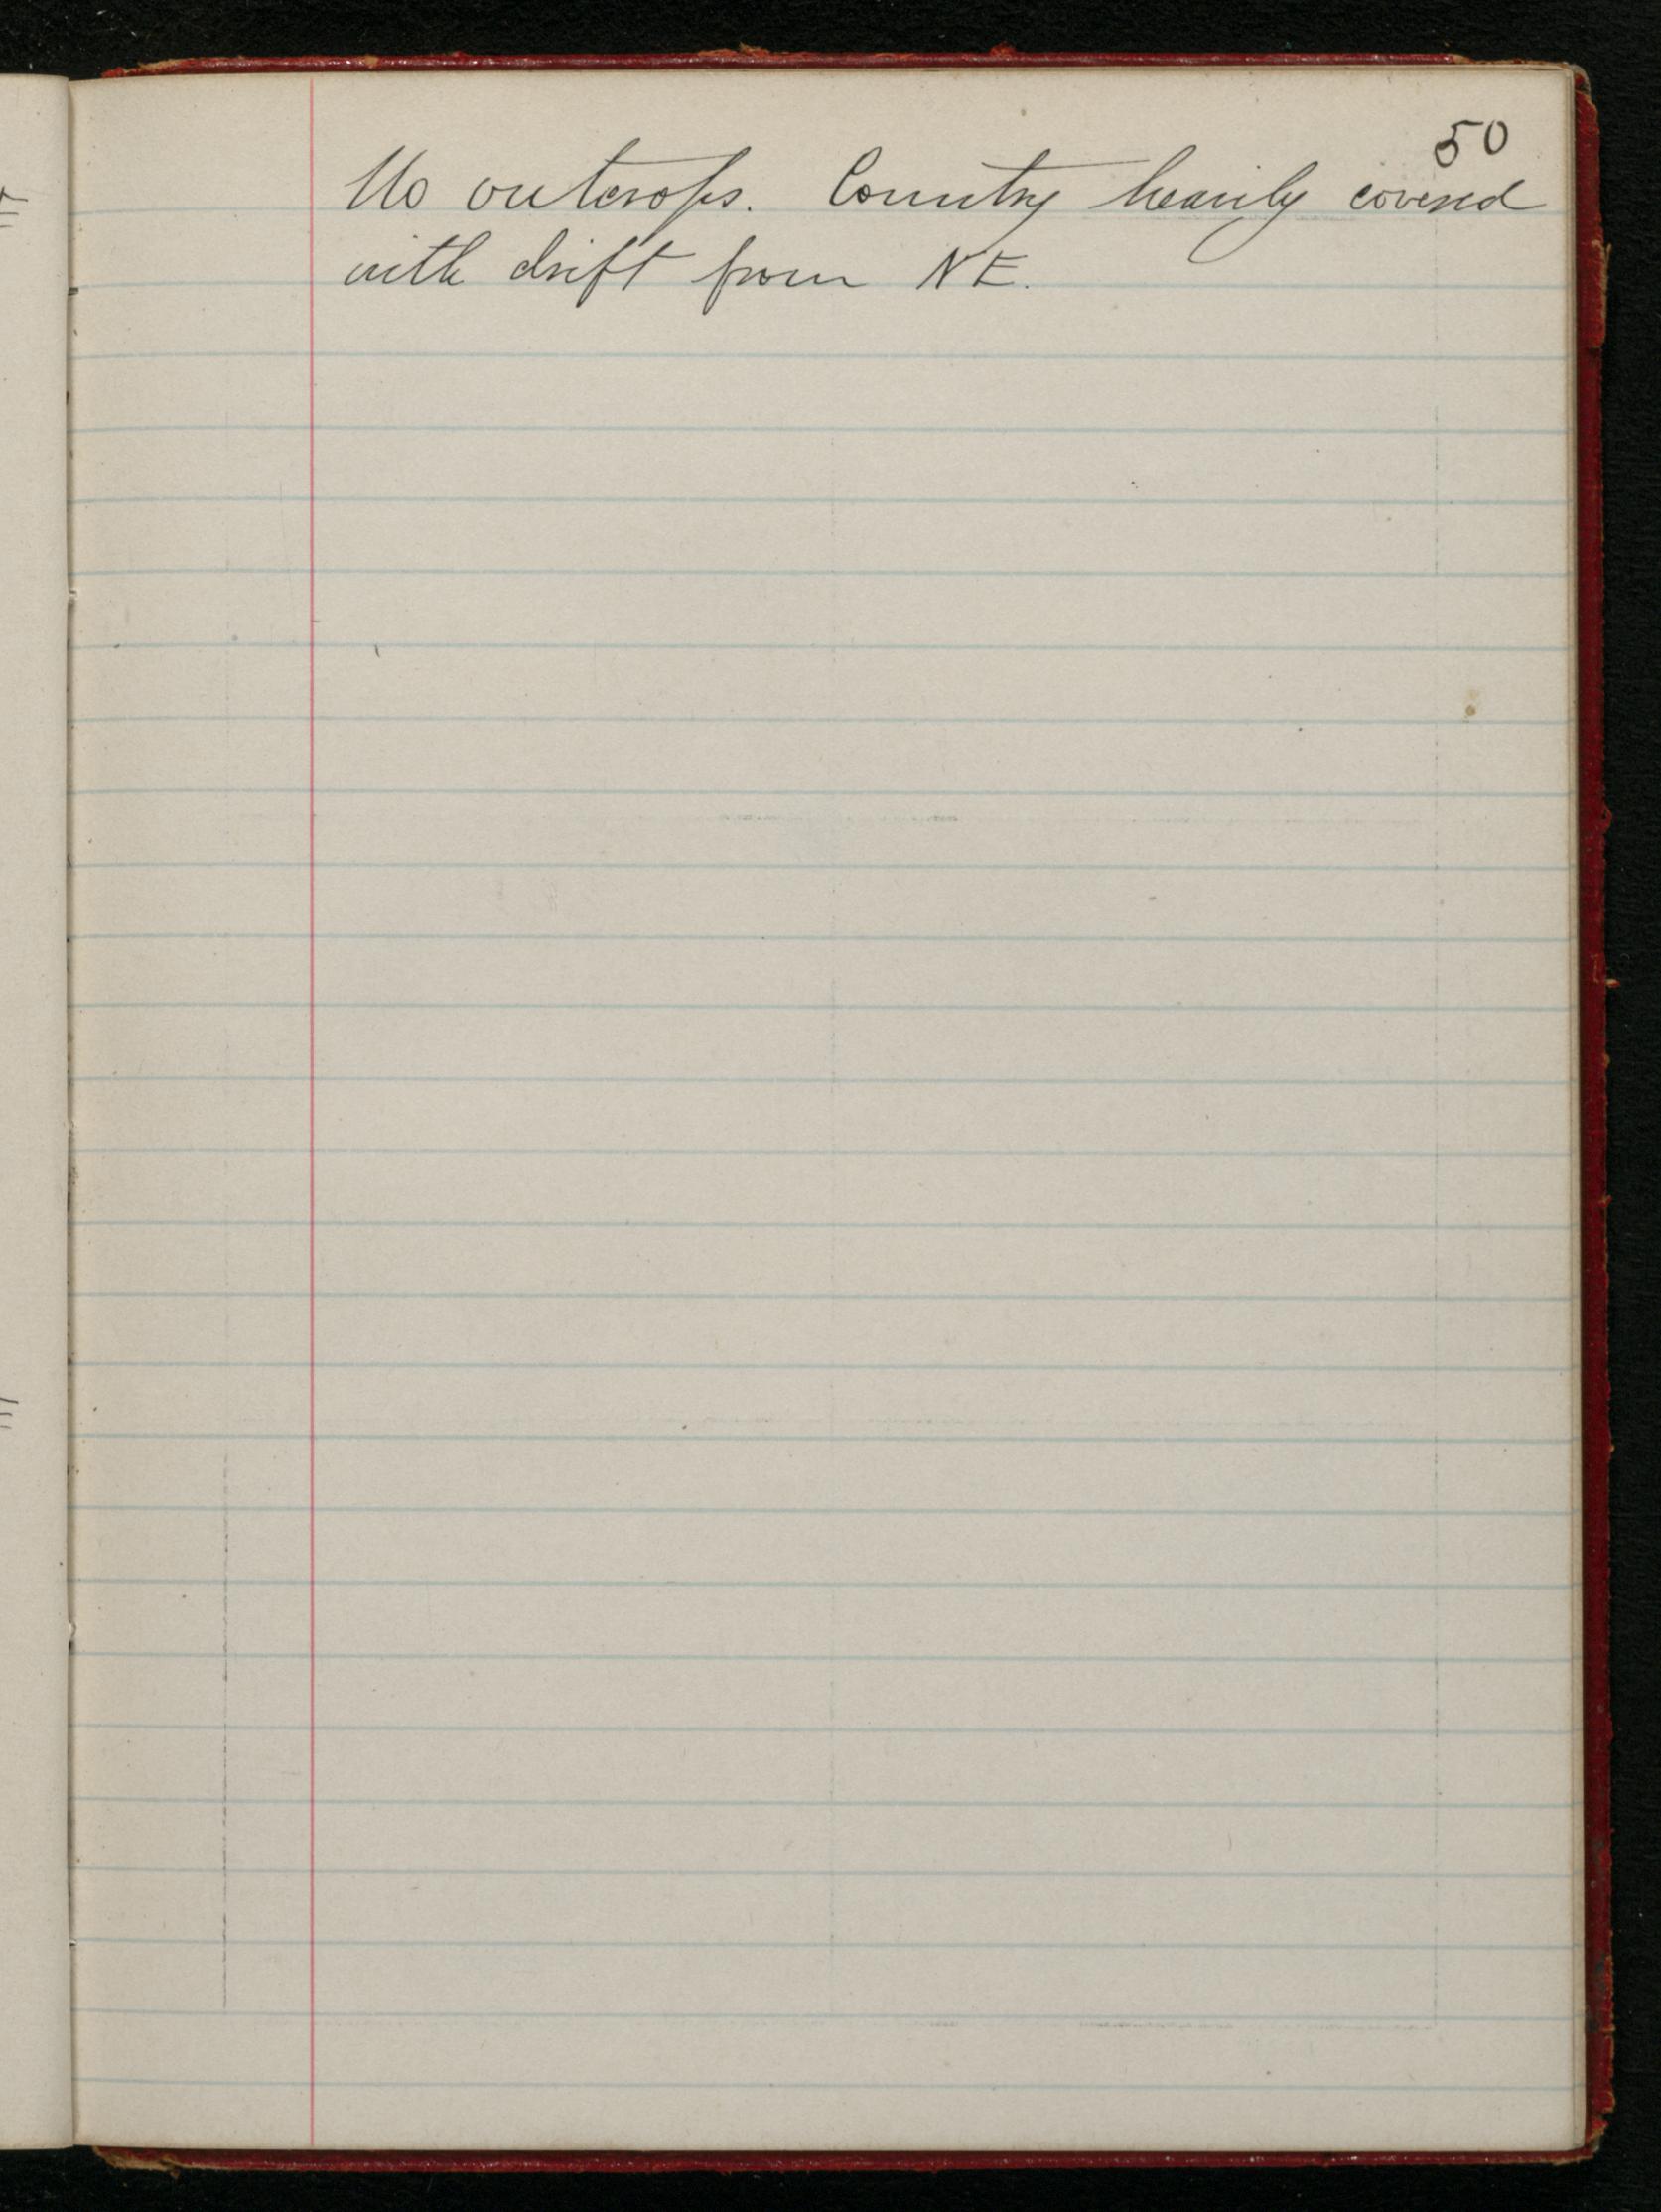 50
No outcrops. Country heavily covered
with drift from NE.